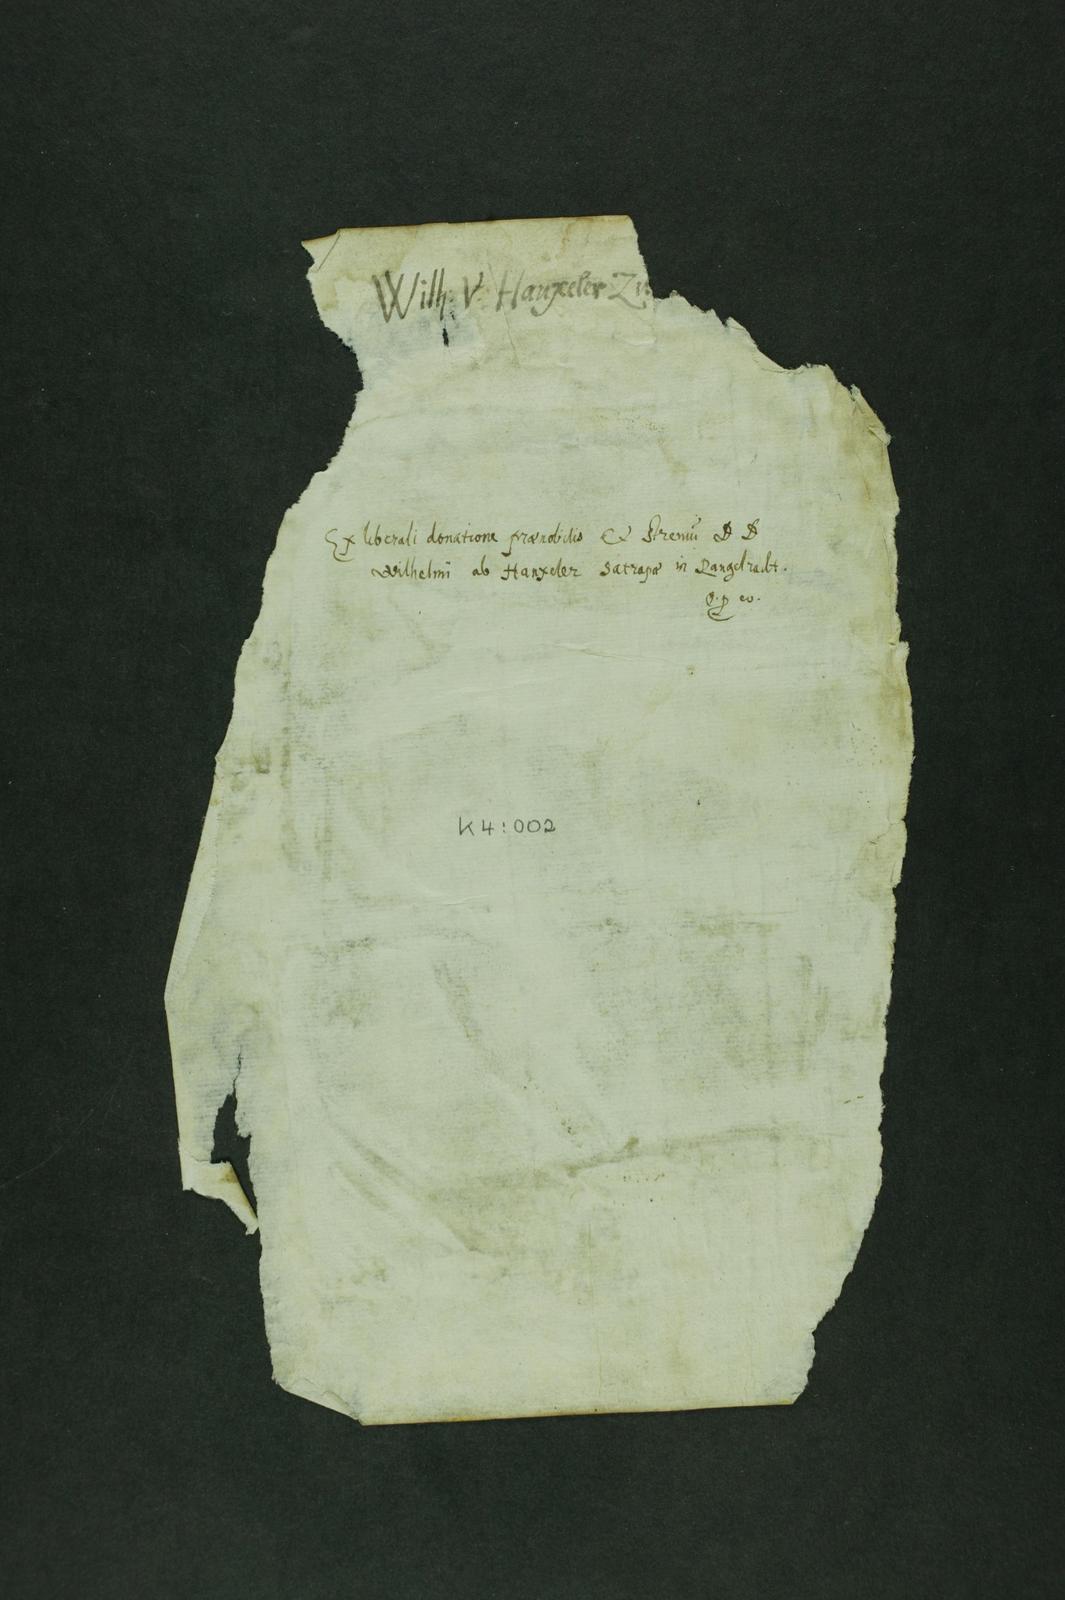 Wilh. V. Hanxeler Zu
Ex liberali donatione prænobilis et strenui D D
Wilhelmi ab Hanxeler Satrapæ in Langstradt.
O. p eo.
K4:002